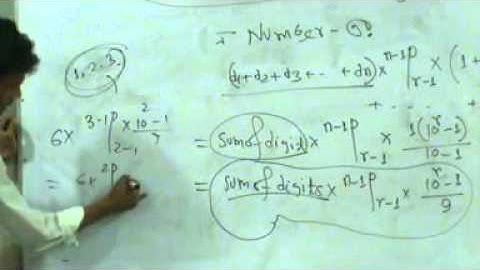 Number -
1, 2, 3.
(d1+d2+d3+-- + dn) × n-1P r-1 × (1+
+ - - -
6× 3-1P 2-1 × 10^2-1 / 9
= Sum of digits × n-1P r-1 × 1(10^r-1) / 10-1
= 6× 2P
= Sum of digits × n-1P r-1 × 10^r-1 / 9